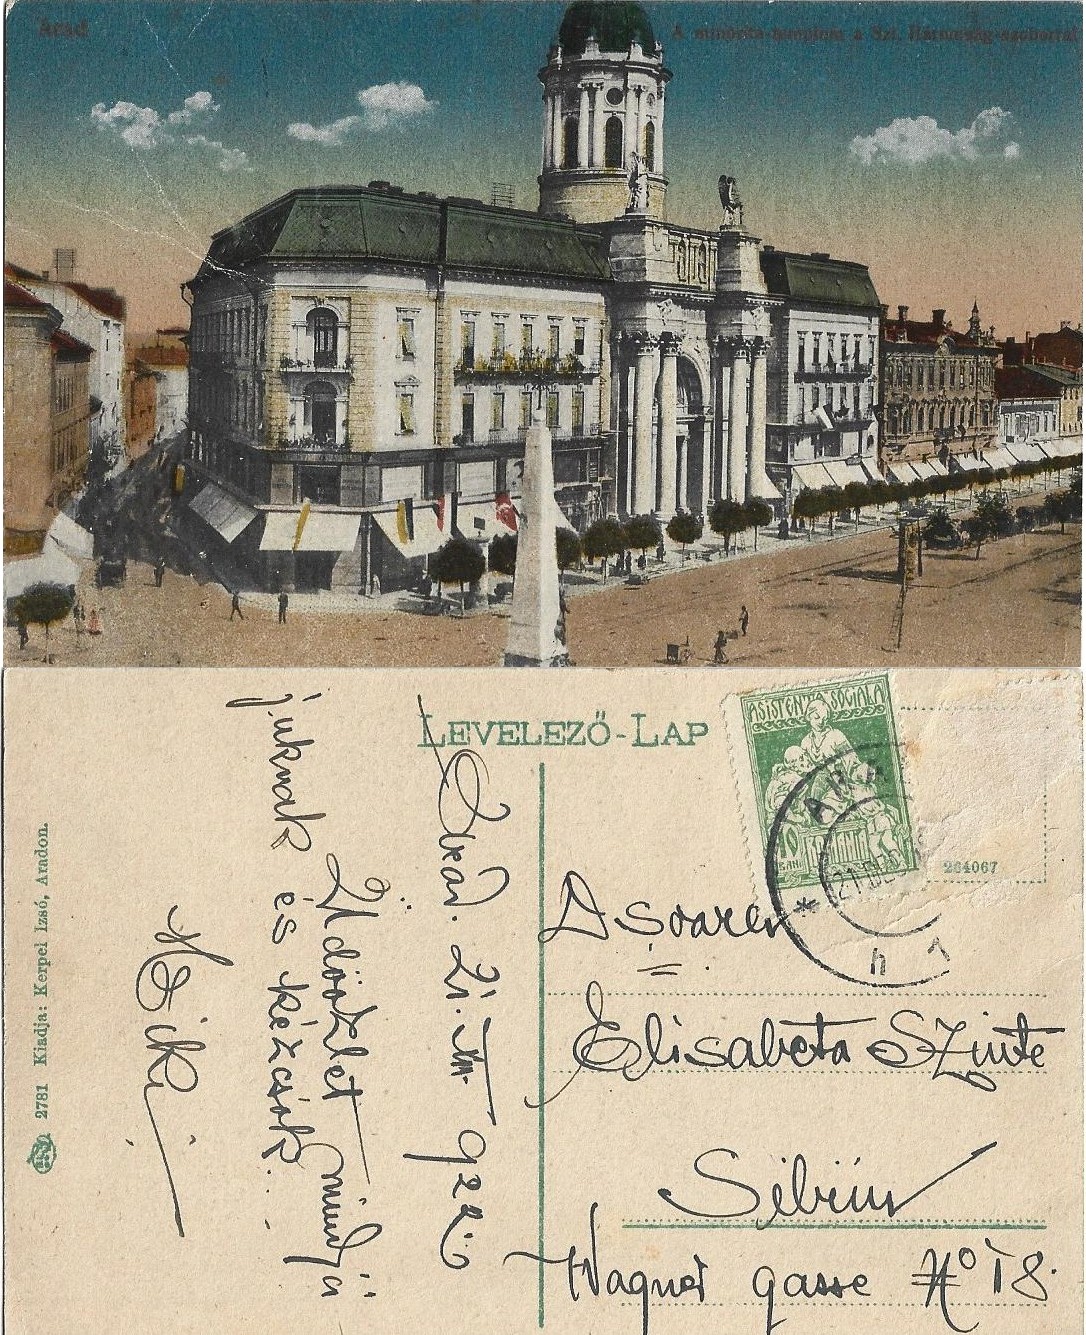 Arad
A minorita-templom a Szt. Háromság-szoborral
LEVELEZŐ-LAP
ASISTENȚA SOCIALA
10
BANI
ARA
21 DEC
264067
h 1
2781 Kiadja: Kerpel Izsó, Aradon.
Arad. 21. XII-
Üdvözlet mind
juknak és kézcsók.
D șoarei
Elisabeta Szinte
Sibiiu
Wagner gasse No 18.